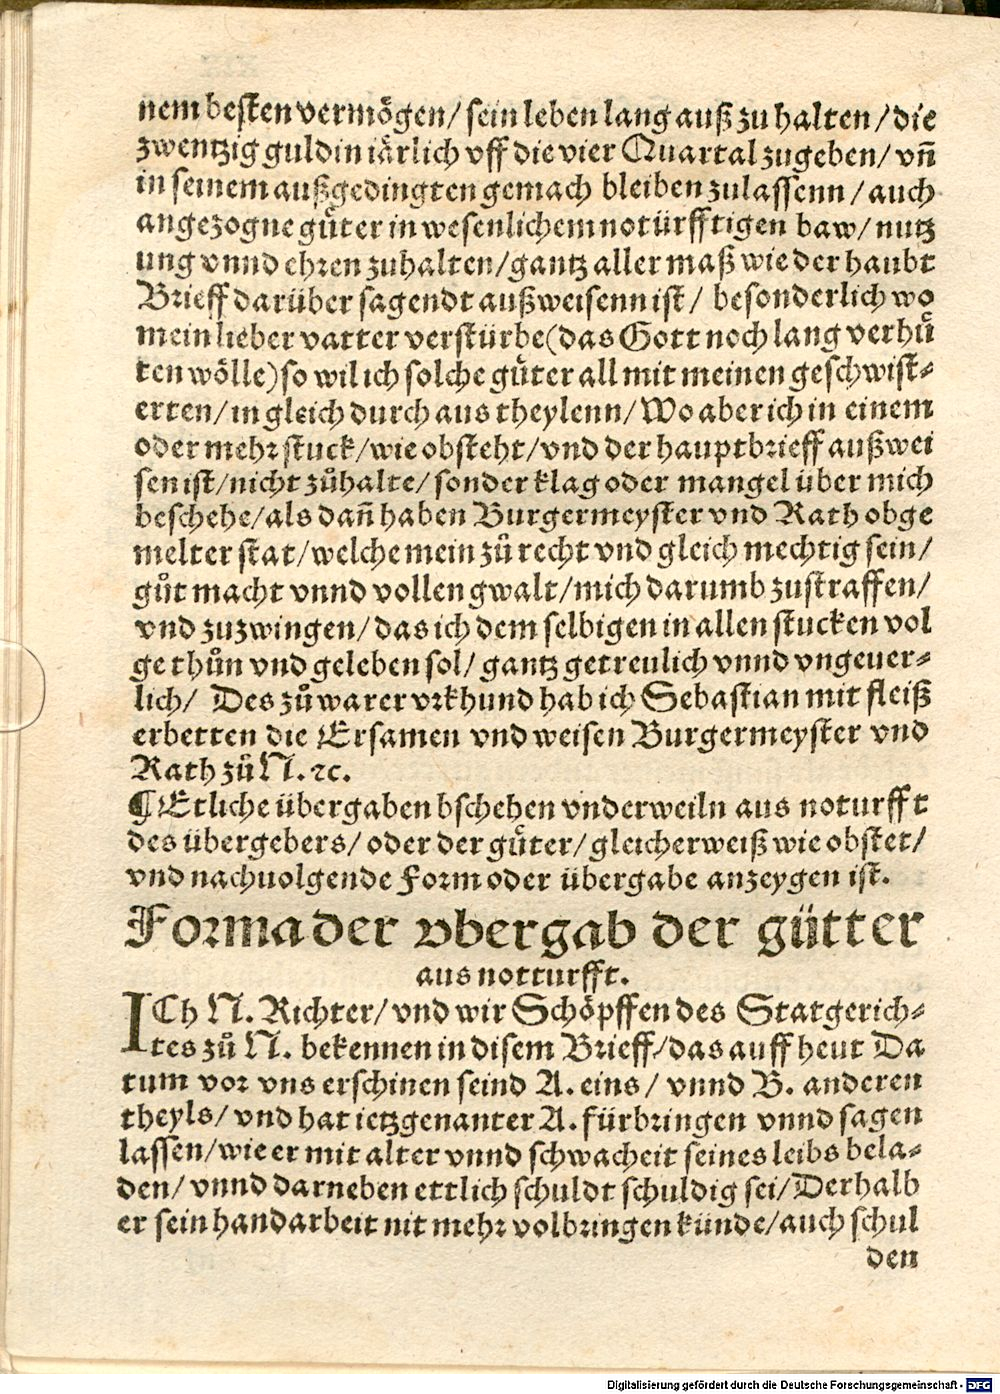 nem besten vermögen/ sein leben lang auß zu halten/ die
zwentzig guldin iärlich vff die vier Quartal zugeben/ vñ
in seinem außgedingten gemach bleiben zulassenn/ auch
angezogne gůter in wesenlichem notürfftigen baw/ nutz
ung vnnd ehren zuhalten/ gantz aller maß wie der haubt
Brieff darüber sagendt außweisenn ist/ besonderlich wo
mein lieber vatter verstürbe (das Gott noch lang verhü
ten wölle) so wil ich solche gůter all mit meinen geschwist⸗
erten/ in gleich durch aus theylenn/ Wo aber ich in einem
oder mehr stuck/ wie obsteht/ vnd der hauptbrieff außwei
sen ist/ nicht zůhalte/ sonder klag oder mangel über mich
beschehe/ als dañ haben Burgermeyster vnd Rath obge
melter stat/ welche mein zů recht vnd gleich mechtig sein/
gůt macht vnnd vollen gwalt/ mich darumb zustraffen/
vnd zuzwingen/ das ich dem selbigen in allen stucken vol
ge thůn vnd geleben sol/ gantz getreulich vnnd vngeuer⸗
lich/ Des zů warer vrkhund hab ich Sebastian mit fleiß
erbetten die Ersamen vnd weisen Burgermeyster vnd
Rath zů N. ꝛc.
¶ Etliche übergaben bschehen vnderweiln aus noturfft
des übergebers/ oder der gůter/ gleicherweiß wie obstet/
vnd nachuolgende Form oder übergabe anzeygen ist.
Forma der vbergab der gütter
aus notturfft.
ICh N. Richter/ vnd wir Schöpffen des Statgerich⸗
tes zů N. bekennen in disem Brieff/ das auff heut Da
tum vor vns erschinen seind A. eins/ vnnd B. anderen
theyls/ vnd hat ietzgenanter A. fürbringen vnnd sagen
lassen/ wie er mit alter vnnd schwacheit seines leibs bela⸗
den/ vnnd darneben ettlich schuldt schuldig sei/ Derhalb
er sein handarbeit nit mehr volbringen künde/ auch schul
den
Digitalisierung gefördert durch die Deutsche Forschungsgemeinschaft - DFG